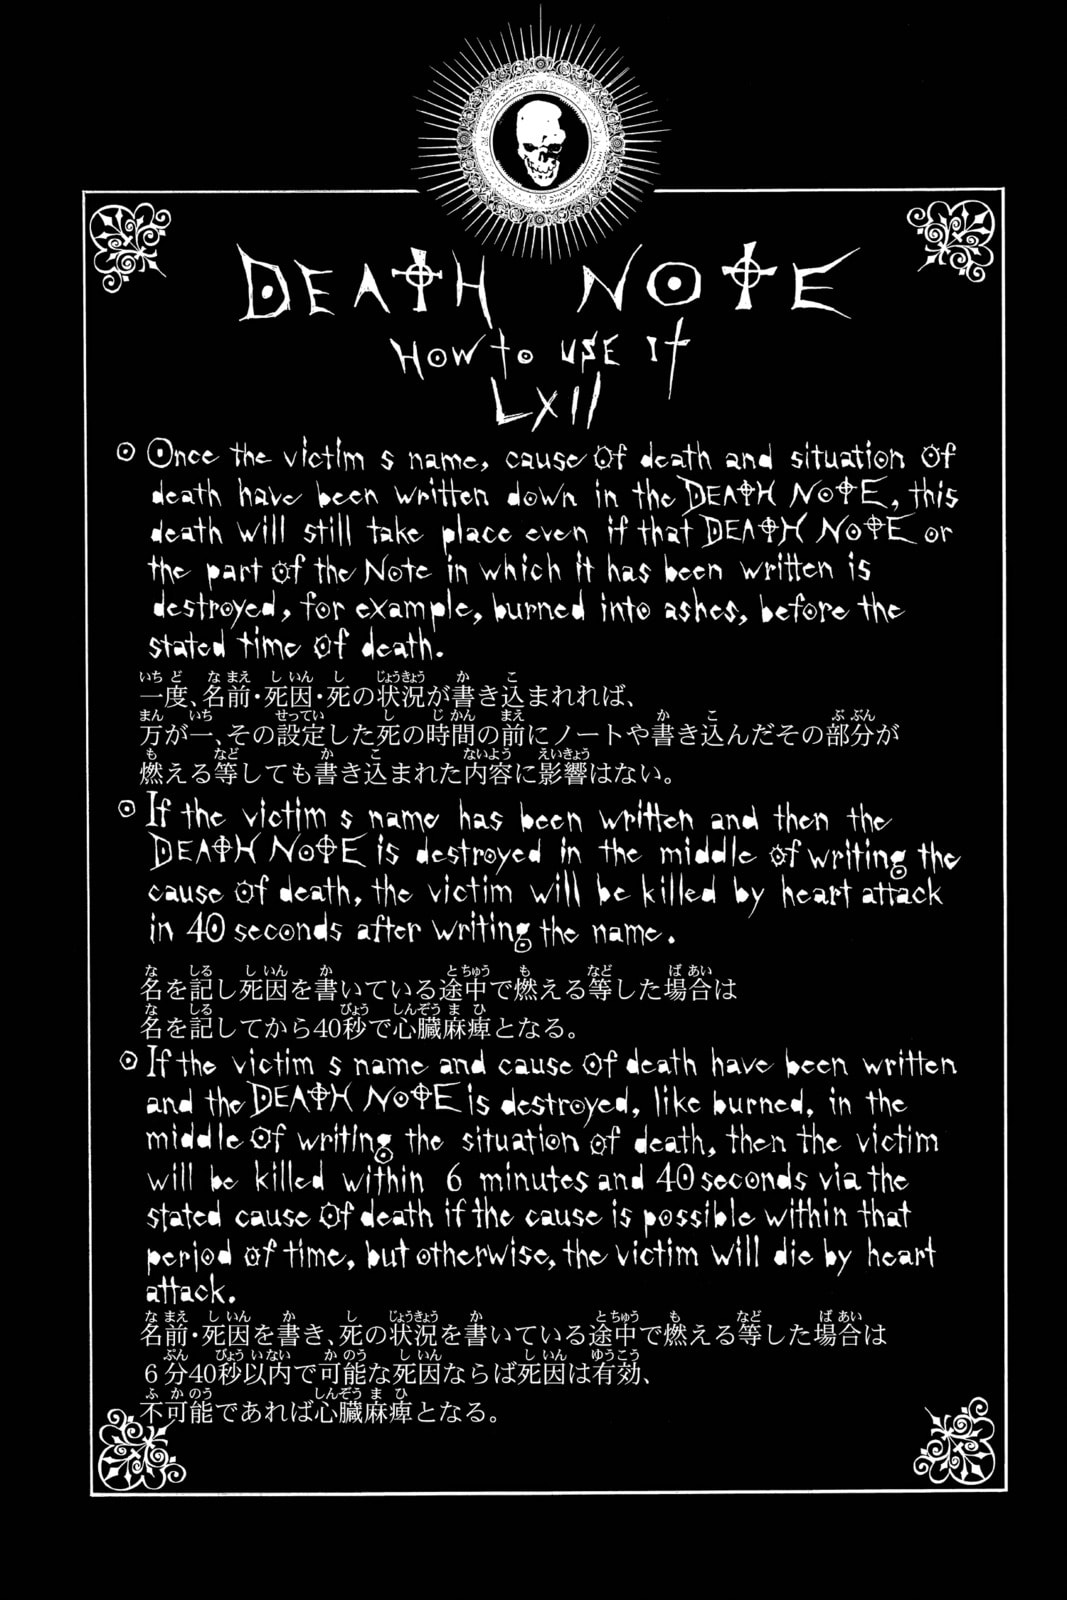 DEATH NOTE
How to use it
LXII
Once the victim s name, cause of death and situation of
death have been written down in the DEATH NOTE, this
death will still take place even if that DEATH NOTE or
the part of the Note in which it has been written is
destroyed, for example, burned into ashes, before the
stated time of death.
一度、名前・死因・死の状況が書き込まれれば、
万が一、その設定した死の時間の前にノートや書き込んだその部分が
燃える等しても書き込まれた内容に影響はない。
If the victim s name has been written and then the
DEATH NOTE is destroyed in the middle of writing the
cause of death, the victim will be killed by heart attack
in 40 seconds after writing the name.
名を記し死因を書いている途中で燃える等した場合は
名を記してから40秒で心臓麻痺となる。
If the victim s name and cause of death have been written
and the DEATH NOTE is destroyed, like burned, in the
middle of writing the situation of death, then the victim
will be killed within 6 minutes and 40 seconds via the
stated cause of death if the cause is possible within that
period of time, but otherwise, the victim will die by heart
attack.
名前・死因を書き、死の状況を書いている途中で燃える等した場合は
6分40秒以内で可能な死因ならば死因は有効、
不可能であれば心臓麻痺となる。